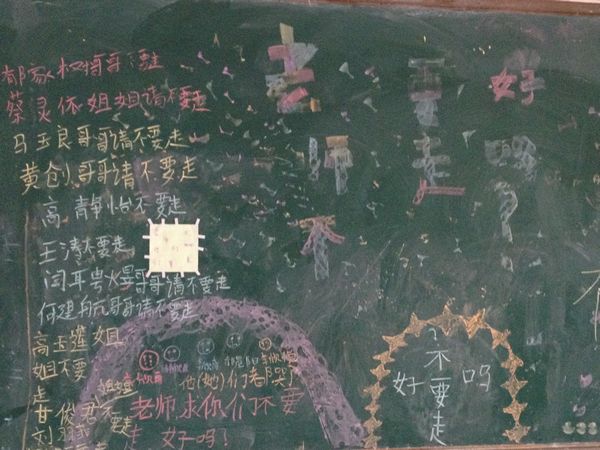 郝家权哥哥不要走
蔡灵依姐姐请不要走
马玉良哥哥请不要走
黄创哥哥请不要走
高静怡不要走
王清不要走
闫耳粤火晏哥哥请不要走
何建航哥哥请不要走
高玉璀姐
姐不要
走
甘俊君不要走
刘
老师不要走好吗?
他(她)们都哭了
老师求你们不要
走 好吗!
不要走
好吗
?